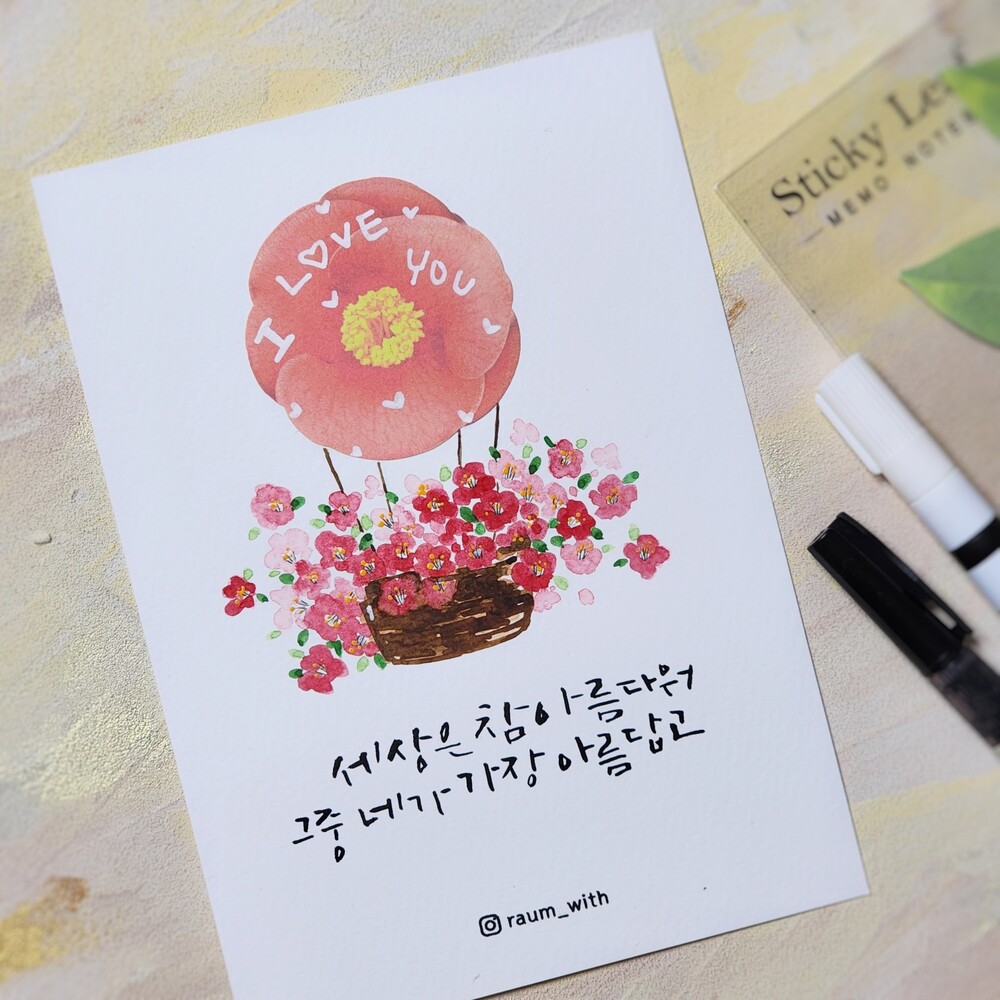 I LOVE YOU
세상은 참 아름다워
그중 네가 가장 아름답고
raum_with
Sticky Lea
MEMO NOTE